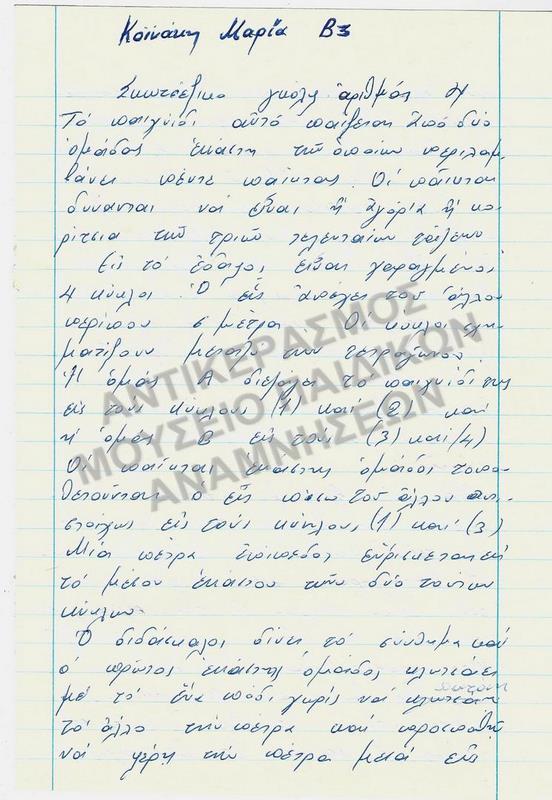 Κοϊνάκη Μαρία Β3
Σκωτσέζικο γκολφ ἀριθμός
Τό παιγνίδι αὐτό παίζεται ἀπό δύο
ὁμάδας ἑκάστη τῶν ὁποίων περιλαμ-
βάνει πέντε παίκτας. Οἱ παῖκται
δύνανται νά εἶναι ἤ ἀγόρια ἤ κο-
ρίτσια τῶν τριῶν τελευταίων τάξεων
Εἰς τό ἔδαφος εἶναι χαραγμένοι
4 κύκλοι. Ὁ εἷς ἀπέχει τοῦ ἄλλου
περίπου 5 μέτρα. Οἱ κύκλοι σχη-
ματίζουν μεταξύ των τετράγωνο.
Ἡ ὁμάς Α διεξάγει τό παιγνίδι της
εἰς τούς κύκλους (1) καί (2) καί
ἡ ὁμάς Β εἰς τούς (3) καί (4)
Οἱ παῖκται ἑκάστης ὁμάδος τοπο-
θετοῦνται ὁ εἷς πίσω τοῦ ἄλλου ἀντι-
στοίχως εἰς τούς κύκλους (1) καί (3)
Μία πέτρα ἐπίπεδος εὑρίσκεται εἰς
τό μέσον ἑκάστου τῶν δύο τούτων
κύκλων.
Ὁ διδάσκαλος δίνει τό σύνθημα καί
ὁ πρῶτος ἑκάστης ὁμάδος κλωτσάει
μέ τό ἕνα πόδι χωρίς νά
τό ἄλλο τήν πέτρα καί προσπαθεῖ
νά φέρῃ τήν πέτρα μέσα εἰς
ΑΝΤΙΚΕΡΑΣΜΟΣ
ΜΟΥΣΕΙΟ ΠΑΙΔΙΚΩΝ
ΑΝΑΜΝΗΣΕΩΝ